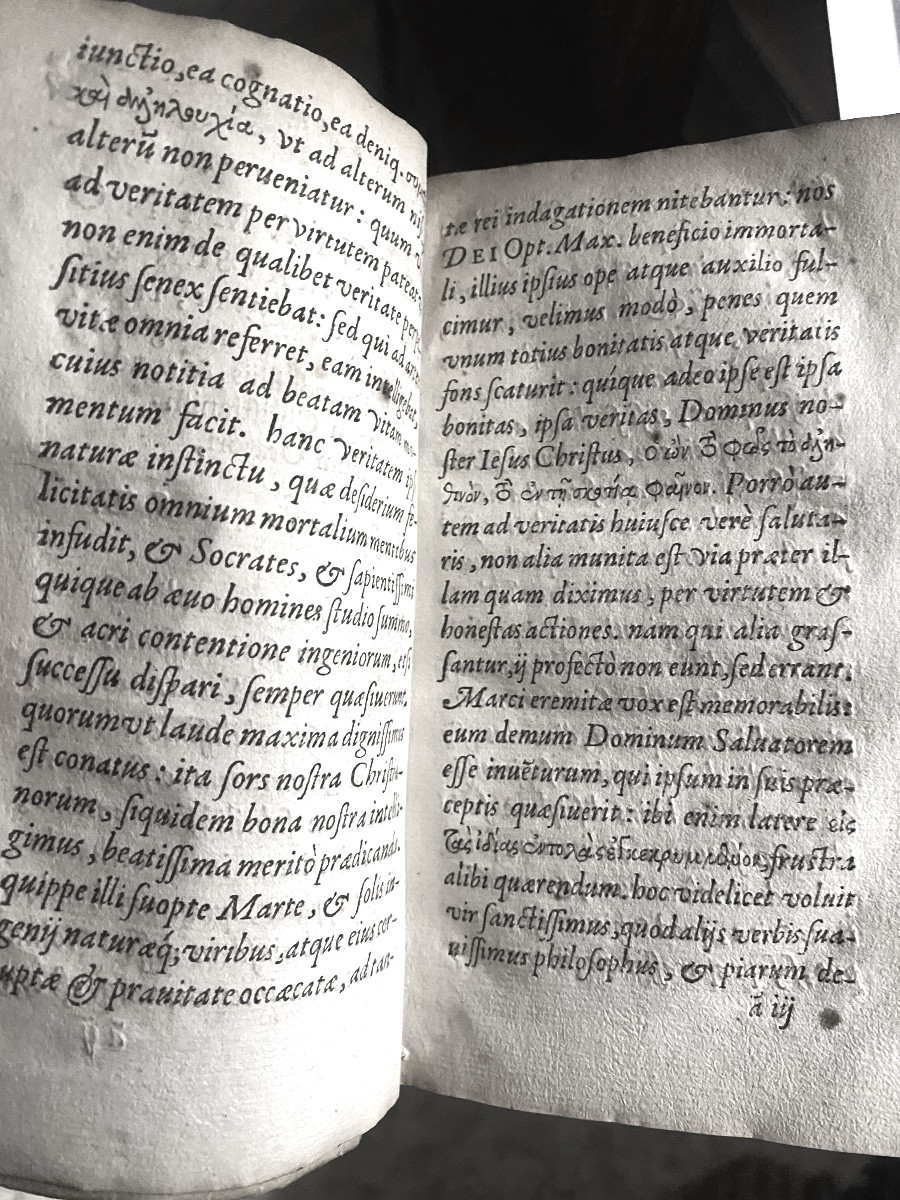 iunctio, ea cognatio, ea deniq.
καὶ ἀλληλουχία, vt ad alterum
alterũ non perueniatur: quum
ad veritatem per virtutem pateat
non enim de qualibet veritate
sitius senex sentiebat: sed qui ad
vitæ omnia referret, eam intelligebat,
cuius notitia ad beatam vitam
mentum facit. hanc veritatem
naturæ instinctu, quæ desiderium fe-
licitatis omnium mortalium mentibus
infudit, & Socrates, & sapientissimi
quique ab æuo homines studio summo,
& acri contentione ingeniorum, etsi
successu dispari, semper quæsiuerunt.
quorum vt laude maxima dignissimus
est conatus: ita sors nostra Christia-
norum, siquidem bona nostra intelli-
gimus, beatissima meritò prædicanda.
quippe illi suopte Marte, & solis in-
genij naturæq́; viribus, atque eius cor-
ruptæ & prauitate occæcatæ, ad tan-
tæ rei indagationem nitebantur: nos
DEI Opt. Max. beneficio immorta-
li, illius ipsius ope atque auxilio ful-
cimur, velimus modò, penes quem
vnum totius bonitatis atque veritatis
fons scaturit: quíque adeo ipse est ipsa
bonitas, ipsa veritas, Dominus no-
ster Iesus Christus, ὁ ὢν τὸ φῶς τὸ ἀλη-
θινὸν, τὸ ἐν τῇ σκοτίᾳ φαῖνον. Porrò au-
tem ad veritatis huiusce verè saluta-
ris, non alia munita est via præter il-
lam quam diximus, per virtutem &
honestas actiones. nam qui alia gras-
santur, ij profectò non eunt, sed errant.
Marci eremitæ vox est memorabilis:
eum demum Dominum Saluatorem
esse inuẽturum, qui ipsum in suis præ-
ceptis quæsiuerit: ibi enim latere εἰς
τὰς ἰδίας ἐντολὰς ἐγκεκρυμμένον, frustra
alibi quærendum. hoc videlicet voluit
vir sanctissimus, quod alijs verbis sua-
uissimus philosophus, & piarum de-
ã iij